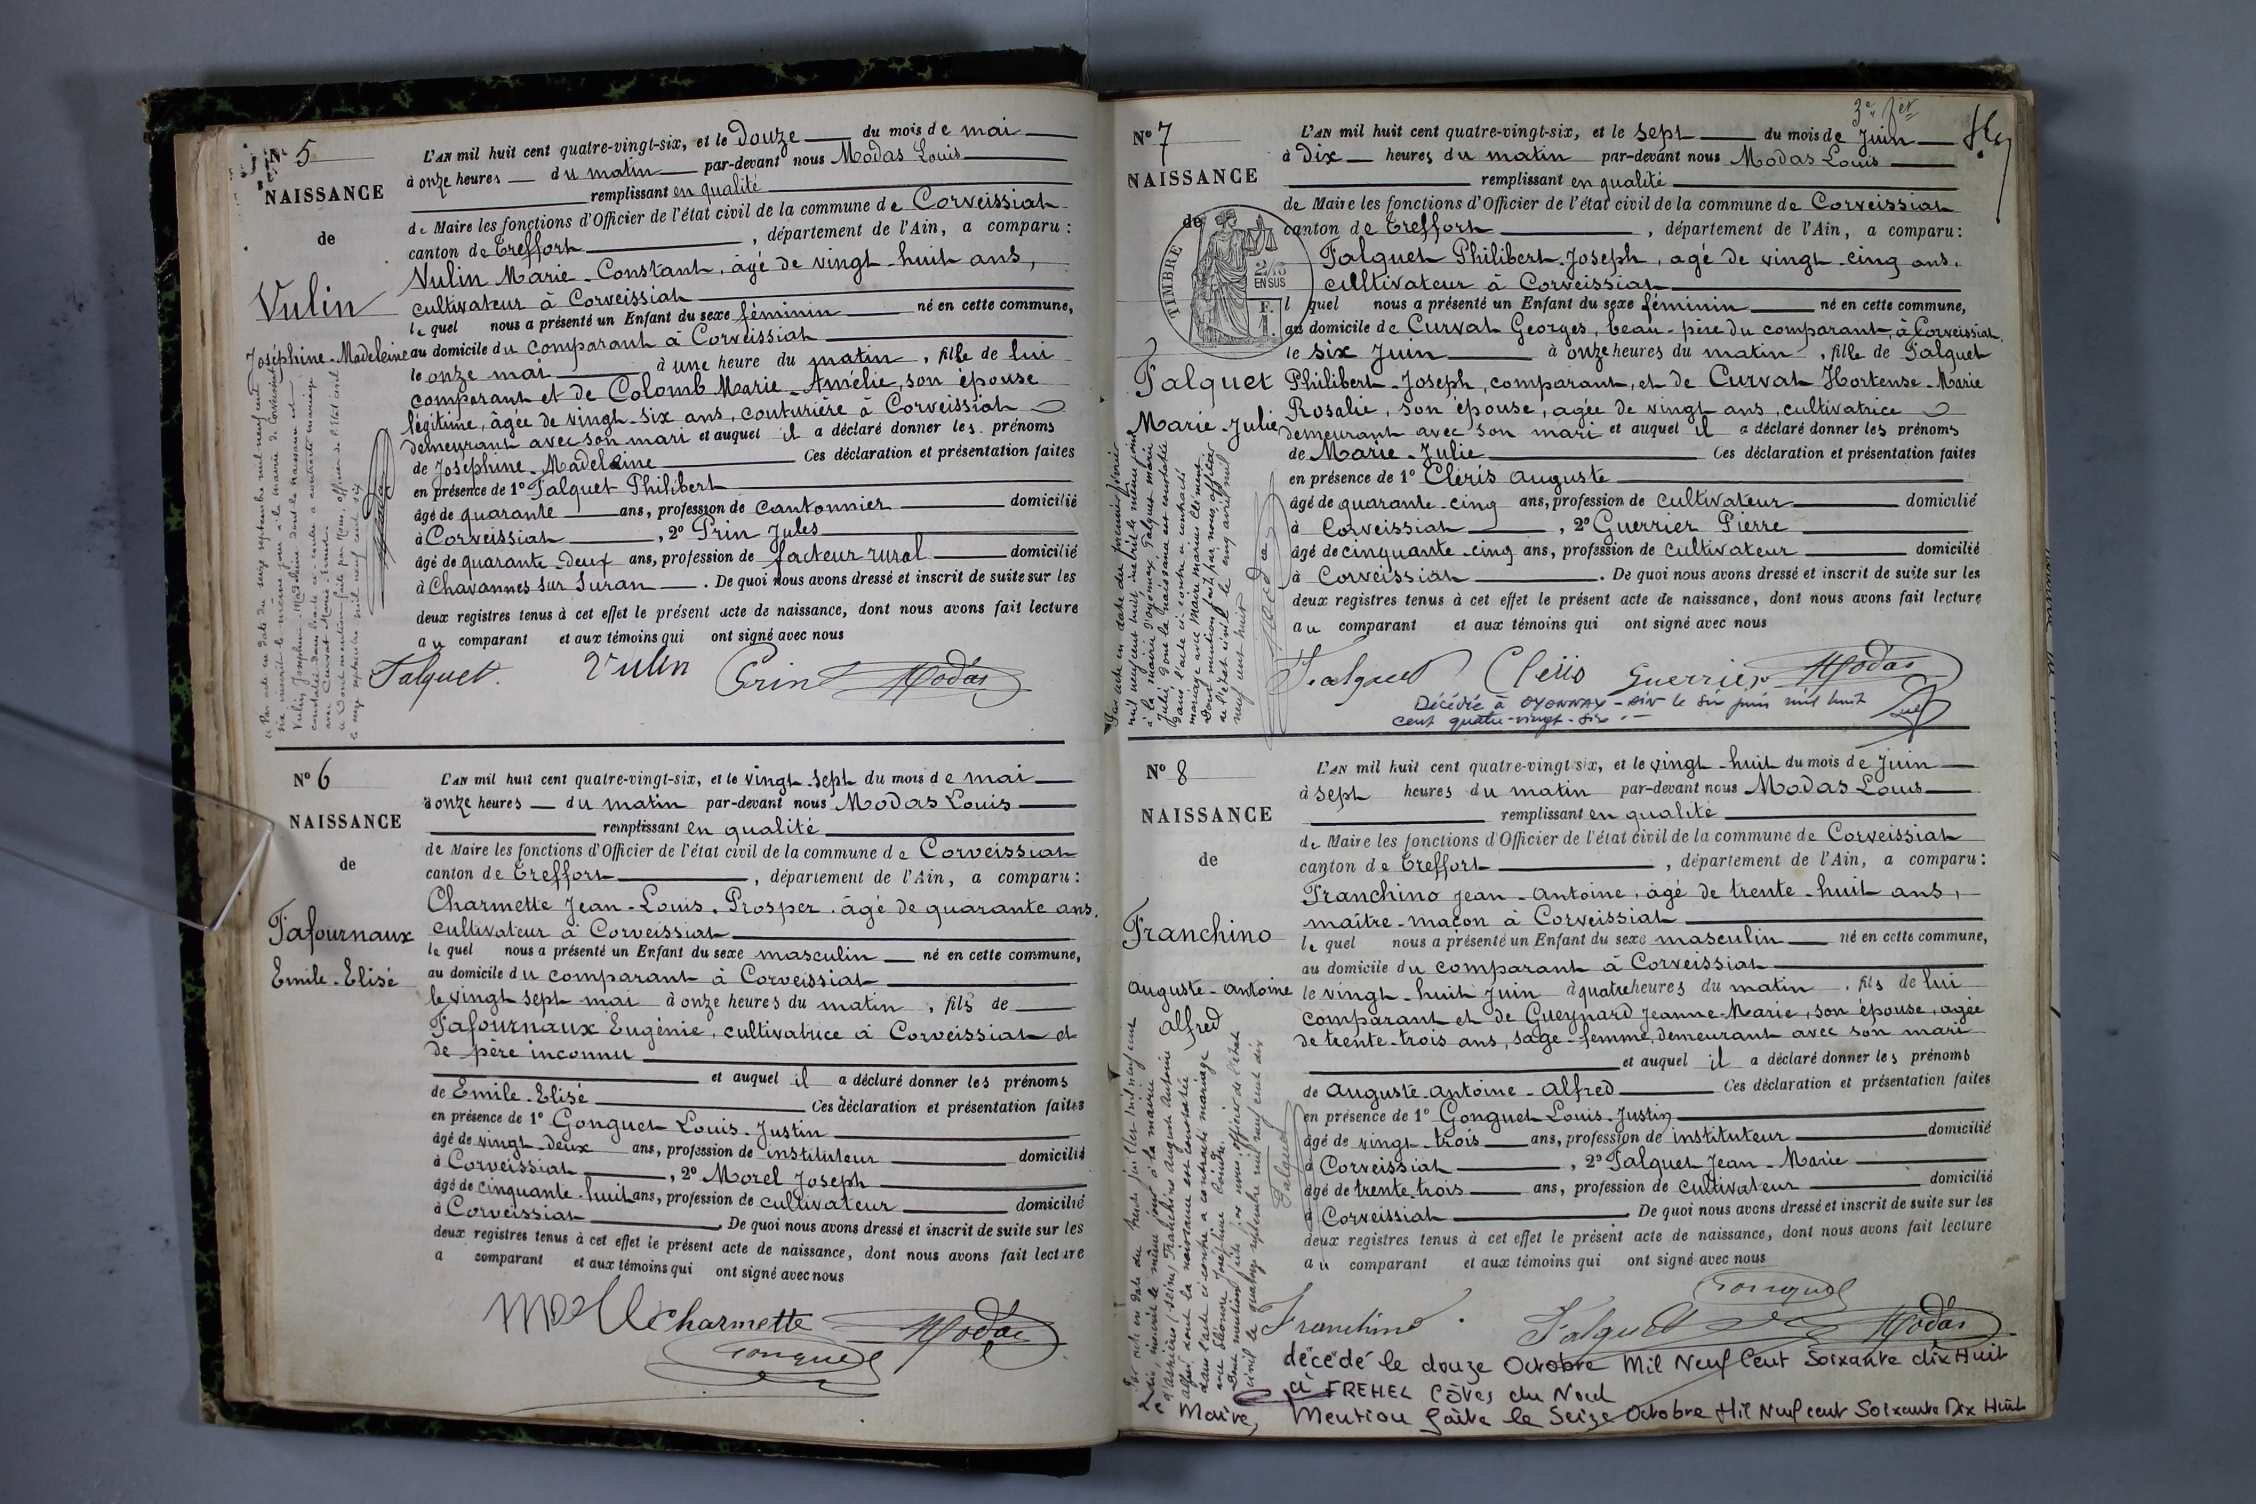 N° 5
NAISSANCE
de
Vulin
Joséphine-Madeleine
L'AN mil huit cent quatre-vingt-six, et le douze du mois de mai
à onze heures du matin par-devant nous Modas Louis
remplissant en qualité
de Maire les fonctions d'Officier de l'état civil de la commune de Corveissiat
canton de Treffort, département de l'Ain, a comparu:
Vulin Marie-Constant, âgé de vingt-huit ans,
cultivateur à Corveissiat
lequel nous a présenté un Enfant du sexe féminin né en cette commune,
au domicile du comparant à Corveissiat
le onze mai à une heure du matin, fille de lui
comparant et de Colomb Marie-Amélie, son épouse
légitime, âgée de vingt-six ans, couturière à Corveissiat
demeurant avec son mari et auquel il a déclaré donner les prénoms
de Joséphine-Madeleine Ces déclaration et présentation faites
en présence de 1° Falquet Philibert
âgé de quarante ans, profession de cantonnier domicilié
à Corveissiat, 2° Prin Jules
âgé de quarante-deux ans, profession de facteur rural domicilié
à Chavannes sur Suran. De quoi nous avons dressé et inscrit de suite sur les
deux registres tenus à cet effet le présent acte de naissance, dont nous avons fait lecture
au comparant et aux témoins qui ont signé avec nous
Falquet. Vulin Prin Modas
Par acte en date du seize septembre mil neuf cent
six inscrit le même jour à la mairie de Corveissiat
Vulin Joséphine-Madeleine dont la naissance est
constatée dans l'acte ci-contre a contracté mariage
avec Curvat Marie-Ernest
Dont mention faite par Nous, officier de l'Etat civil
le seize septembre mil neuf cent six
N° 6
NAISSANCE
de
Tafournaux
Emile-Elisé
L'AN mil huit cent quatre-vingt-six, et le vingt-sept du mois de mai
à onze heures du matin par-devant nous Modas Louis
remplissant en qualité
de Maire les fonctions d'Officier de l'état civil de la commune de Corveissiat
canton de Treffort, département de l'Ain, a comparu:
Charmette Jean-Louis-Prosper, âgé de quarante ans,
cultivateur à Corveissiat
lequel nous a présenté un Enfant du sexe masculin né en cette commune,
au domicile du comparant à Corveissiat
le vingt sept mai à onze heures du matin, fils de
Tafournaux Eugénie, cultivatrice à Corveissiat et
de père inconnu
et auquel il a déclaré donner les prénoms
de Emile-Elisé Ces déclaration et présentation faites
en présence de 1° Gonguet Louis-Justin
âgé de vingt-deux ans, profession de instituteur domicilié
à Corveissiat, 2° Morel Joseph
âgé de cinquante-huit ans, profession de cultivateur domicilié
à Corveissiat. De quoi nous avons dressé et inscrit de suite sur les
deux registres tenus à cet effet le présent acte de naissance, dont nous avons fait lecture
a comparant et aux témoins qui ont signé avec nous
Morel Charmette Modas
Gonguet
3e fet
N° 7
NAISSANCE
de
TIMBRE
2/10
EN SUS
1 F.
Falquet
Marie-Julie
L'AN mil huit cent quatre-vingt-six, et le sept du mois de Juin
à dix heures du matin par-devant nous Modas Louis
remplissant en qualité
de Maire les fonctions d'Officier de l'état civil de la commune de Corveissiat
canton de Treffort, département de l'Ain, a comparu:
Falquet Philibert-Joseph, âgé de vingt-cinq ans,
cultivateur à Corveissiat
lequel nous a présenté un Enfant du sexe féminin né en cette commune,
au domicile de Curvat Georges, beau-père du comparant, à Corveissiat,
le six Juin à onze heures du matin, fille de Falquet
Philibert-Joseph, comparant, et de Curvat Hortense-Marie
Rosalie, son épouse, agée de vingt ans, cultivatrice
demeurant avec son mari et auquel il a déclaré donner les prénoms
de Marie-Julie Ces déclaration et présentation faites
en présence de 1° Cléris Auguste
âgé de quarante-cinq ans, profession de cultivateur domicilié
à Corveissiat, 2° Guerrier Pierre
âgé de cinquante-cinq ans, profession de cultivateur domicilié
à Corveissiat. De quoi nous avons dressé et inscrit de suite sur les
deux registres tenus à cet effet le présent acte de naissance, dont nous avons fait lecture
au comparant et aux témoins qui ont signé avec nous
Falquet Cléris Guerrier Modas
Décédée à OYONNAX - AIN le six juin mil huit
cent quatre-vingt-six
Par acte en date du premier février
mil neuf cent huit inscrit le même jour
à la mairie d'Oyonnax, Falquet Marie
Julie, dont la naissance est constatée
dans l'acte ci-contre a contracté
mariage avec Maire Marius Clément.
Dont mention faite par nous, officier
de l'état civil le cinq avril mil
neuf cent huit
N° 8
NAISSANCE
de
Franchino
Auguste-Antoine
Alfred
L'AN mil huit cent quatre-vingt-six, et le vingt-huit du mois de Juin
à sept heures du matin par-devant nous Modas Louis
remplissant en qualité
de Maire les fonctions d'Officier de l'état civil de la commune de Corveissiat
canton de Treffort, département de l'Ain, a comparu:
Franchino Jean-Antoine, âgé de trente-huit ans,
maître-maçon à Corveissiat
lequel nous a présenté un Enfant du sexe masculin né en cette commune,
au domicile du comparant à Corveissiat
le vingt-huit Juin à quatre heures du matin, fils de lui
comparant et de Gueynard Jeanne-Marie, son épouse, agée
de trente-trois ans, sage-femme, demeurant avec son mari
et auquel il a déclaré donner les prénoms
de Auguste-Antoine-Alfred Ces déclaration et présentation faites
en présence de 1° Gonguet Louis-Justin
âgé de vingt-trois ans, profession de instituteur domicilié
à Corveissiat, 2° Falquet Jean-Marie
âgé de trente-trois ans, profession de cultivateur domicilié
à Corveissiat De quoi nous avons dressé et inscrit de suite sur les
deux registres tenus à cet effet le présent acte de naissance, dont nous avons fait lecture
au comparant et aux témoins qui ont signé avec nous
Gonguet
Franchino Falquet Modas
décédé le douze Octobre Mil Neuf Cent Soixante dix Huit
à FREHEL Côtes du Nord
Mention faite le Seize Octobre Mil Neuf cent Soixante Dix Huit
Maire,
Par acte en date du trente juillet mil neuf cent
dix, inscrit le même jour à la mairie
d'Asnières (Seine) Franchino Auguste Antoine
Alfred dont la naissance est constatée
dans l'acte ci-contre a contracté mariage
avec Eléonore Joséphine
Dont mention faite par nous officier de l'état
civil le quatorze septembre mil neuf cent dix
Falquet